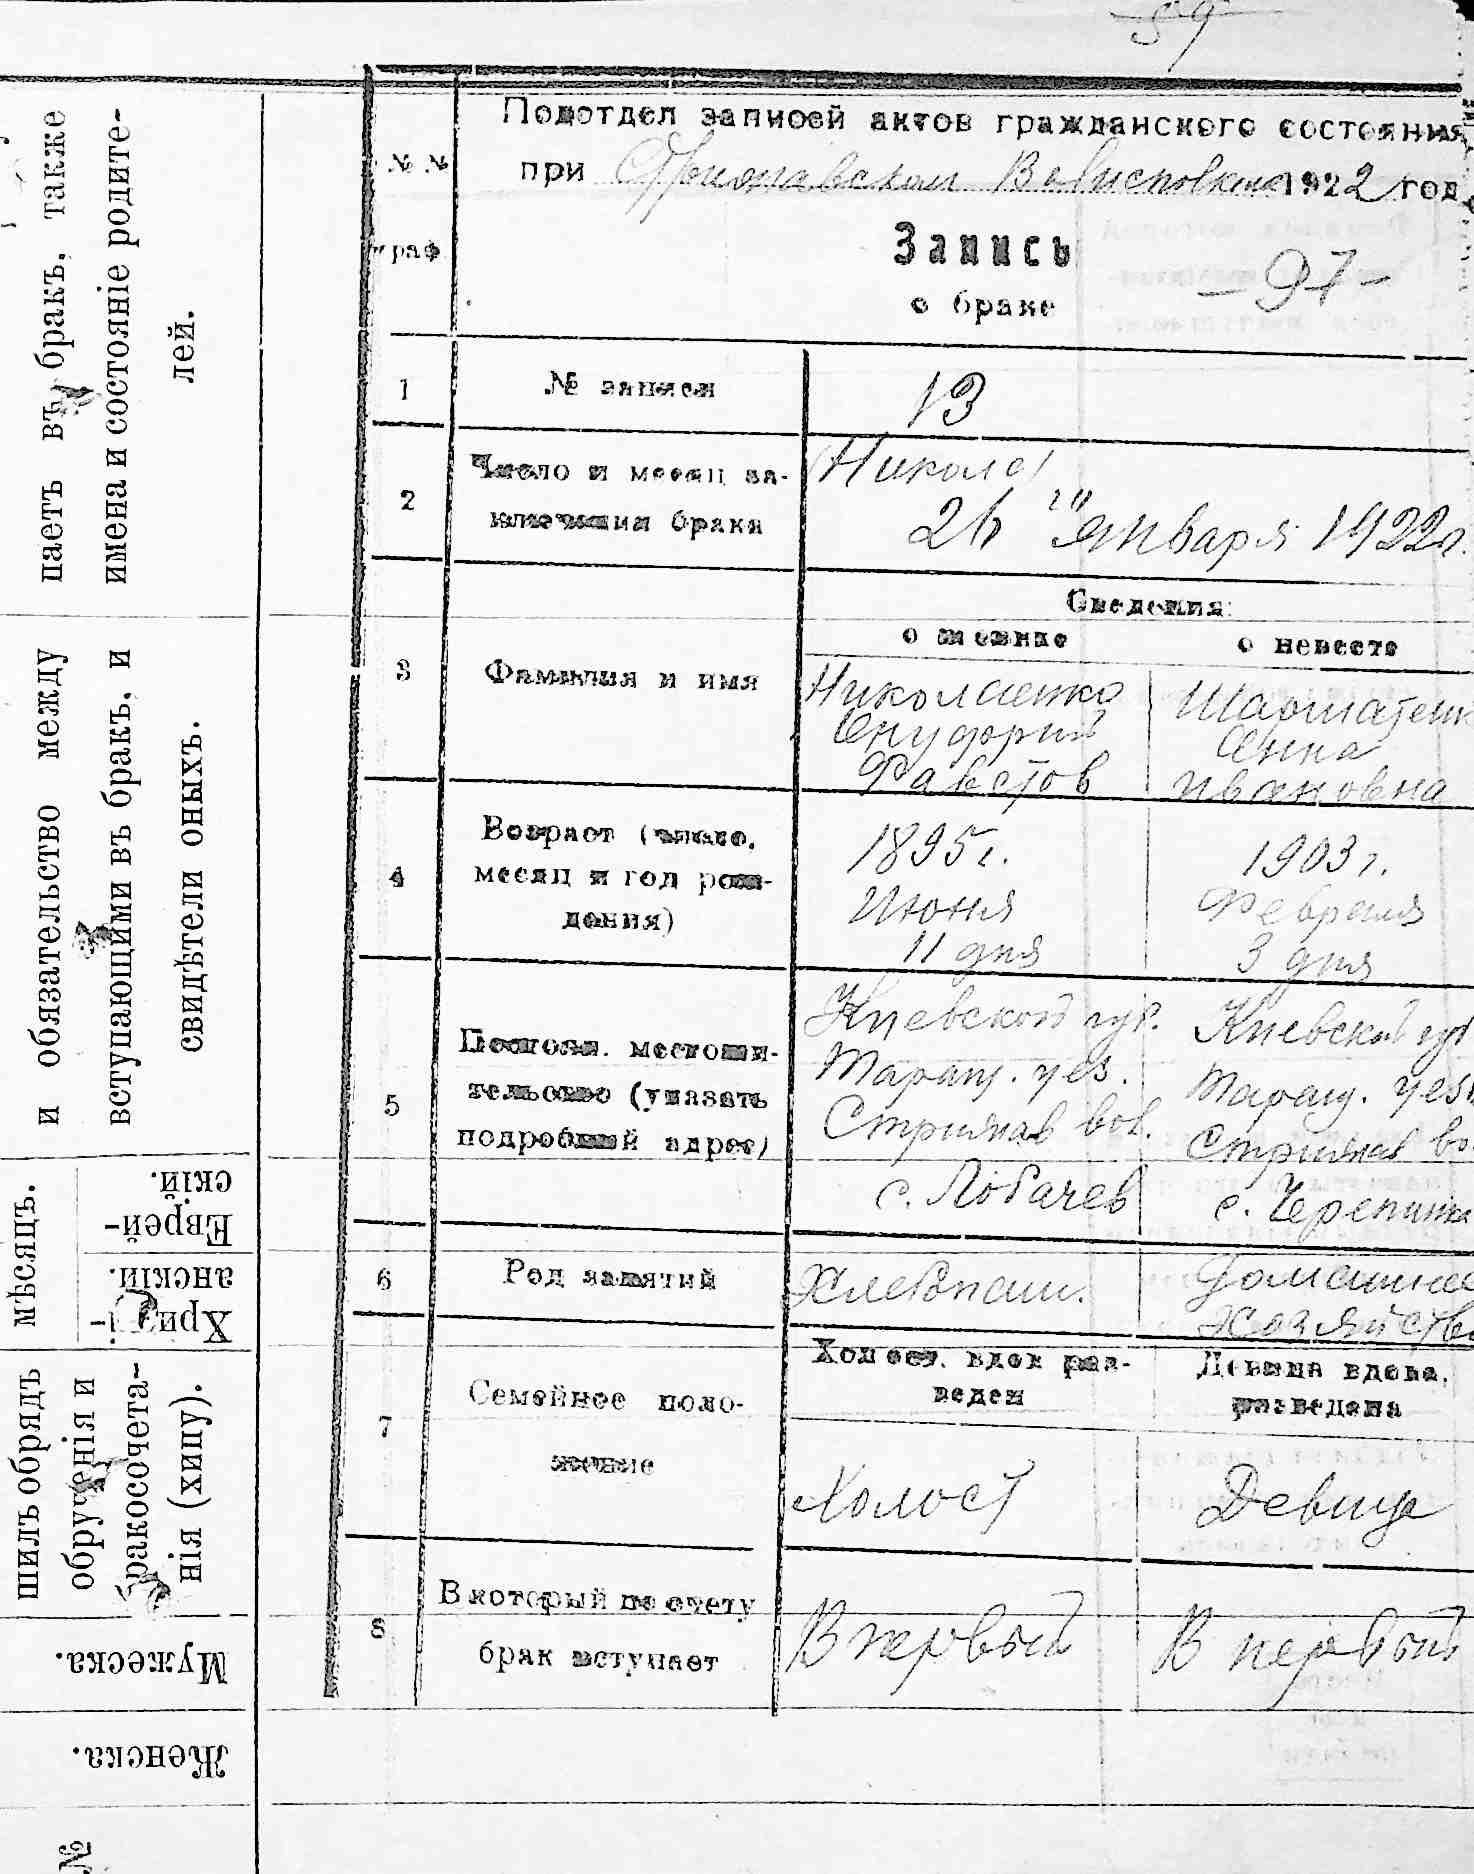 59
Подотдел записей актов гражданского состояния
при Стрижавском Волисполкоме 1922 год
№ №
граф
Запись
о браке
— 97 —
1
№ записи
13
2
Число и месяц за-
ключения брака
26 "Января 1922 г.
Сведения:
о женихе
о невесте
3
Фамилия и имя
Николаенко
Онуфрий
Фавстов
Анна
Ивановна
4
Возраст (число,
месяц и год рож-
дения)
1895 г.
Июня
11 дня
1903 г.
Февраля
3 дня
5
Постоян. местожи-
тельство (указать
подробный адрес)
Киевской губ.
Таращ. уез.
Стрижав вол.
с. Лобачев
Киевской губ
Таращ. уез
Стрижав во
с. Черепинка
6
Род занятий
Хлебопаш.
Домашнее
Хозяйство
7
Семейное поло-
жение
Холост, вдов, раз-
веден
Девица, вдова,
разведена
Холост
Девица
8
В который по счету
брак вступает
В первый
В первый
паетъ въ бракъ, также
имена и состояніе родите-
лей.
и обязательство между
вступающими въ бракъ, и
свидѣтели оныхъ.
мѣсяцъ.
Еврей-
скій.
Христі-
анскій.
шилъ обрядъ
обрученія и
бракосочета-
нія (хипу).
Мужеска.
Женска.
№